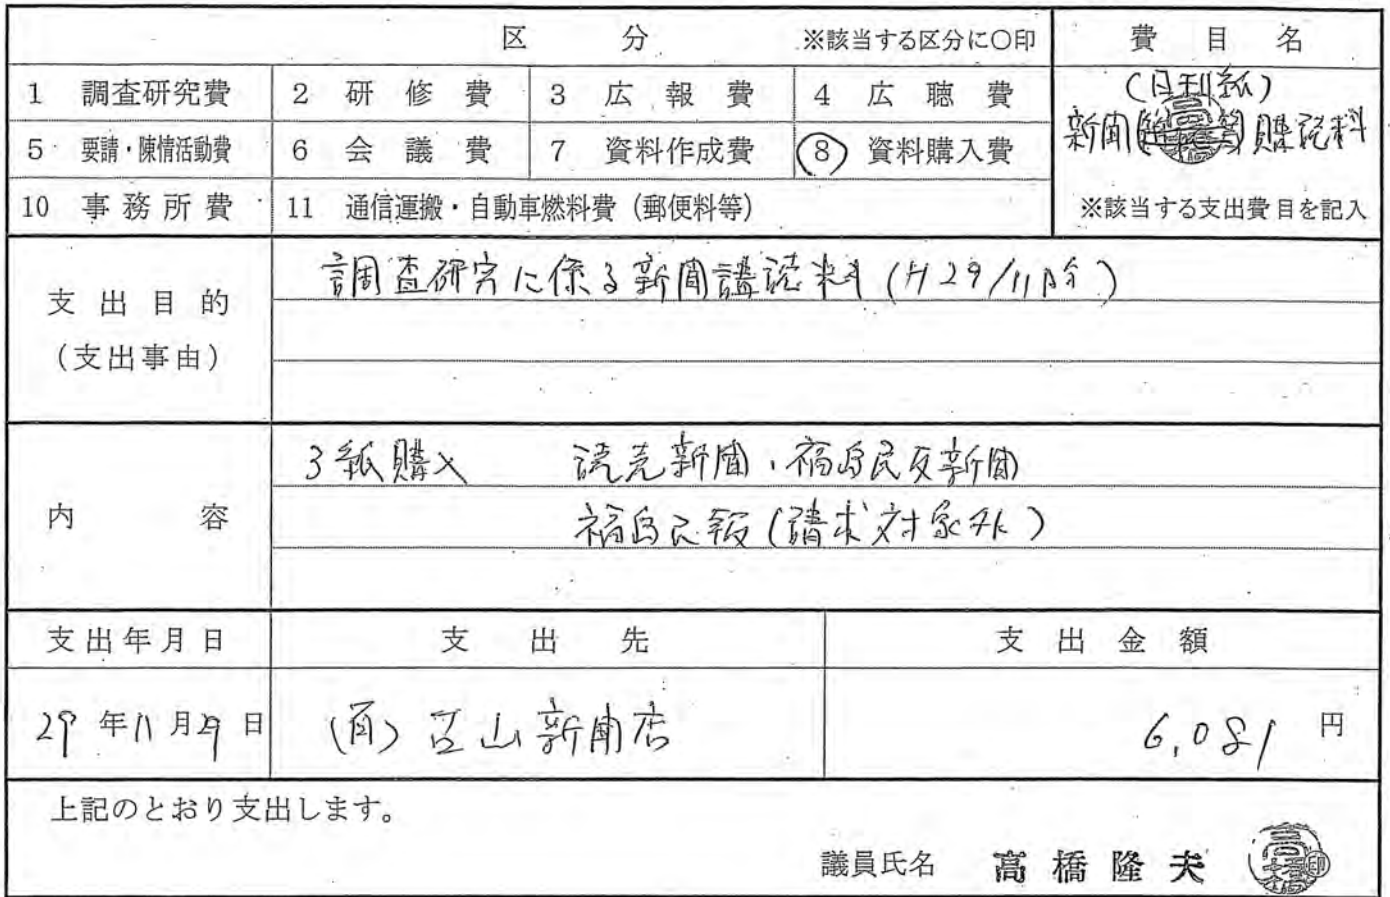 区 分 ※該当する区分に○印
費 目 名
1 調査研究費 2 研 修 費 3 広 報 費 4 広 聴 費
(日刊紙)
5 要請・陳情活動費 6 会 議 費 7 資料作成費 ⑧ 資料購入費
新聞 購読料
10 事務所費 11 通信運搬・自動車燃料費(郵便料等)
※該当する支出費目を記入
支出目的
(支出事由)
調査研究に係る新聞購読料(H29/11月分)
内 容
3紙購入 読売新聞、福島民友新聞
福島民報(請求対象外)
支出年月日 支 出 先 支 出 金 額
29年11月29日 (有) 山新聞店 6,081 円
上記のとおり支出します。
議員氏名 高橋隆夫